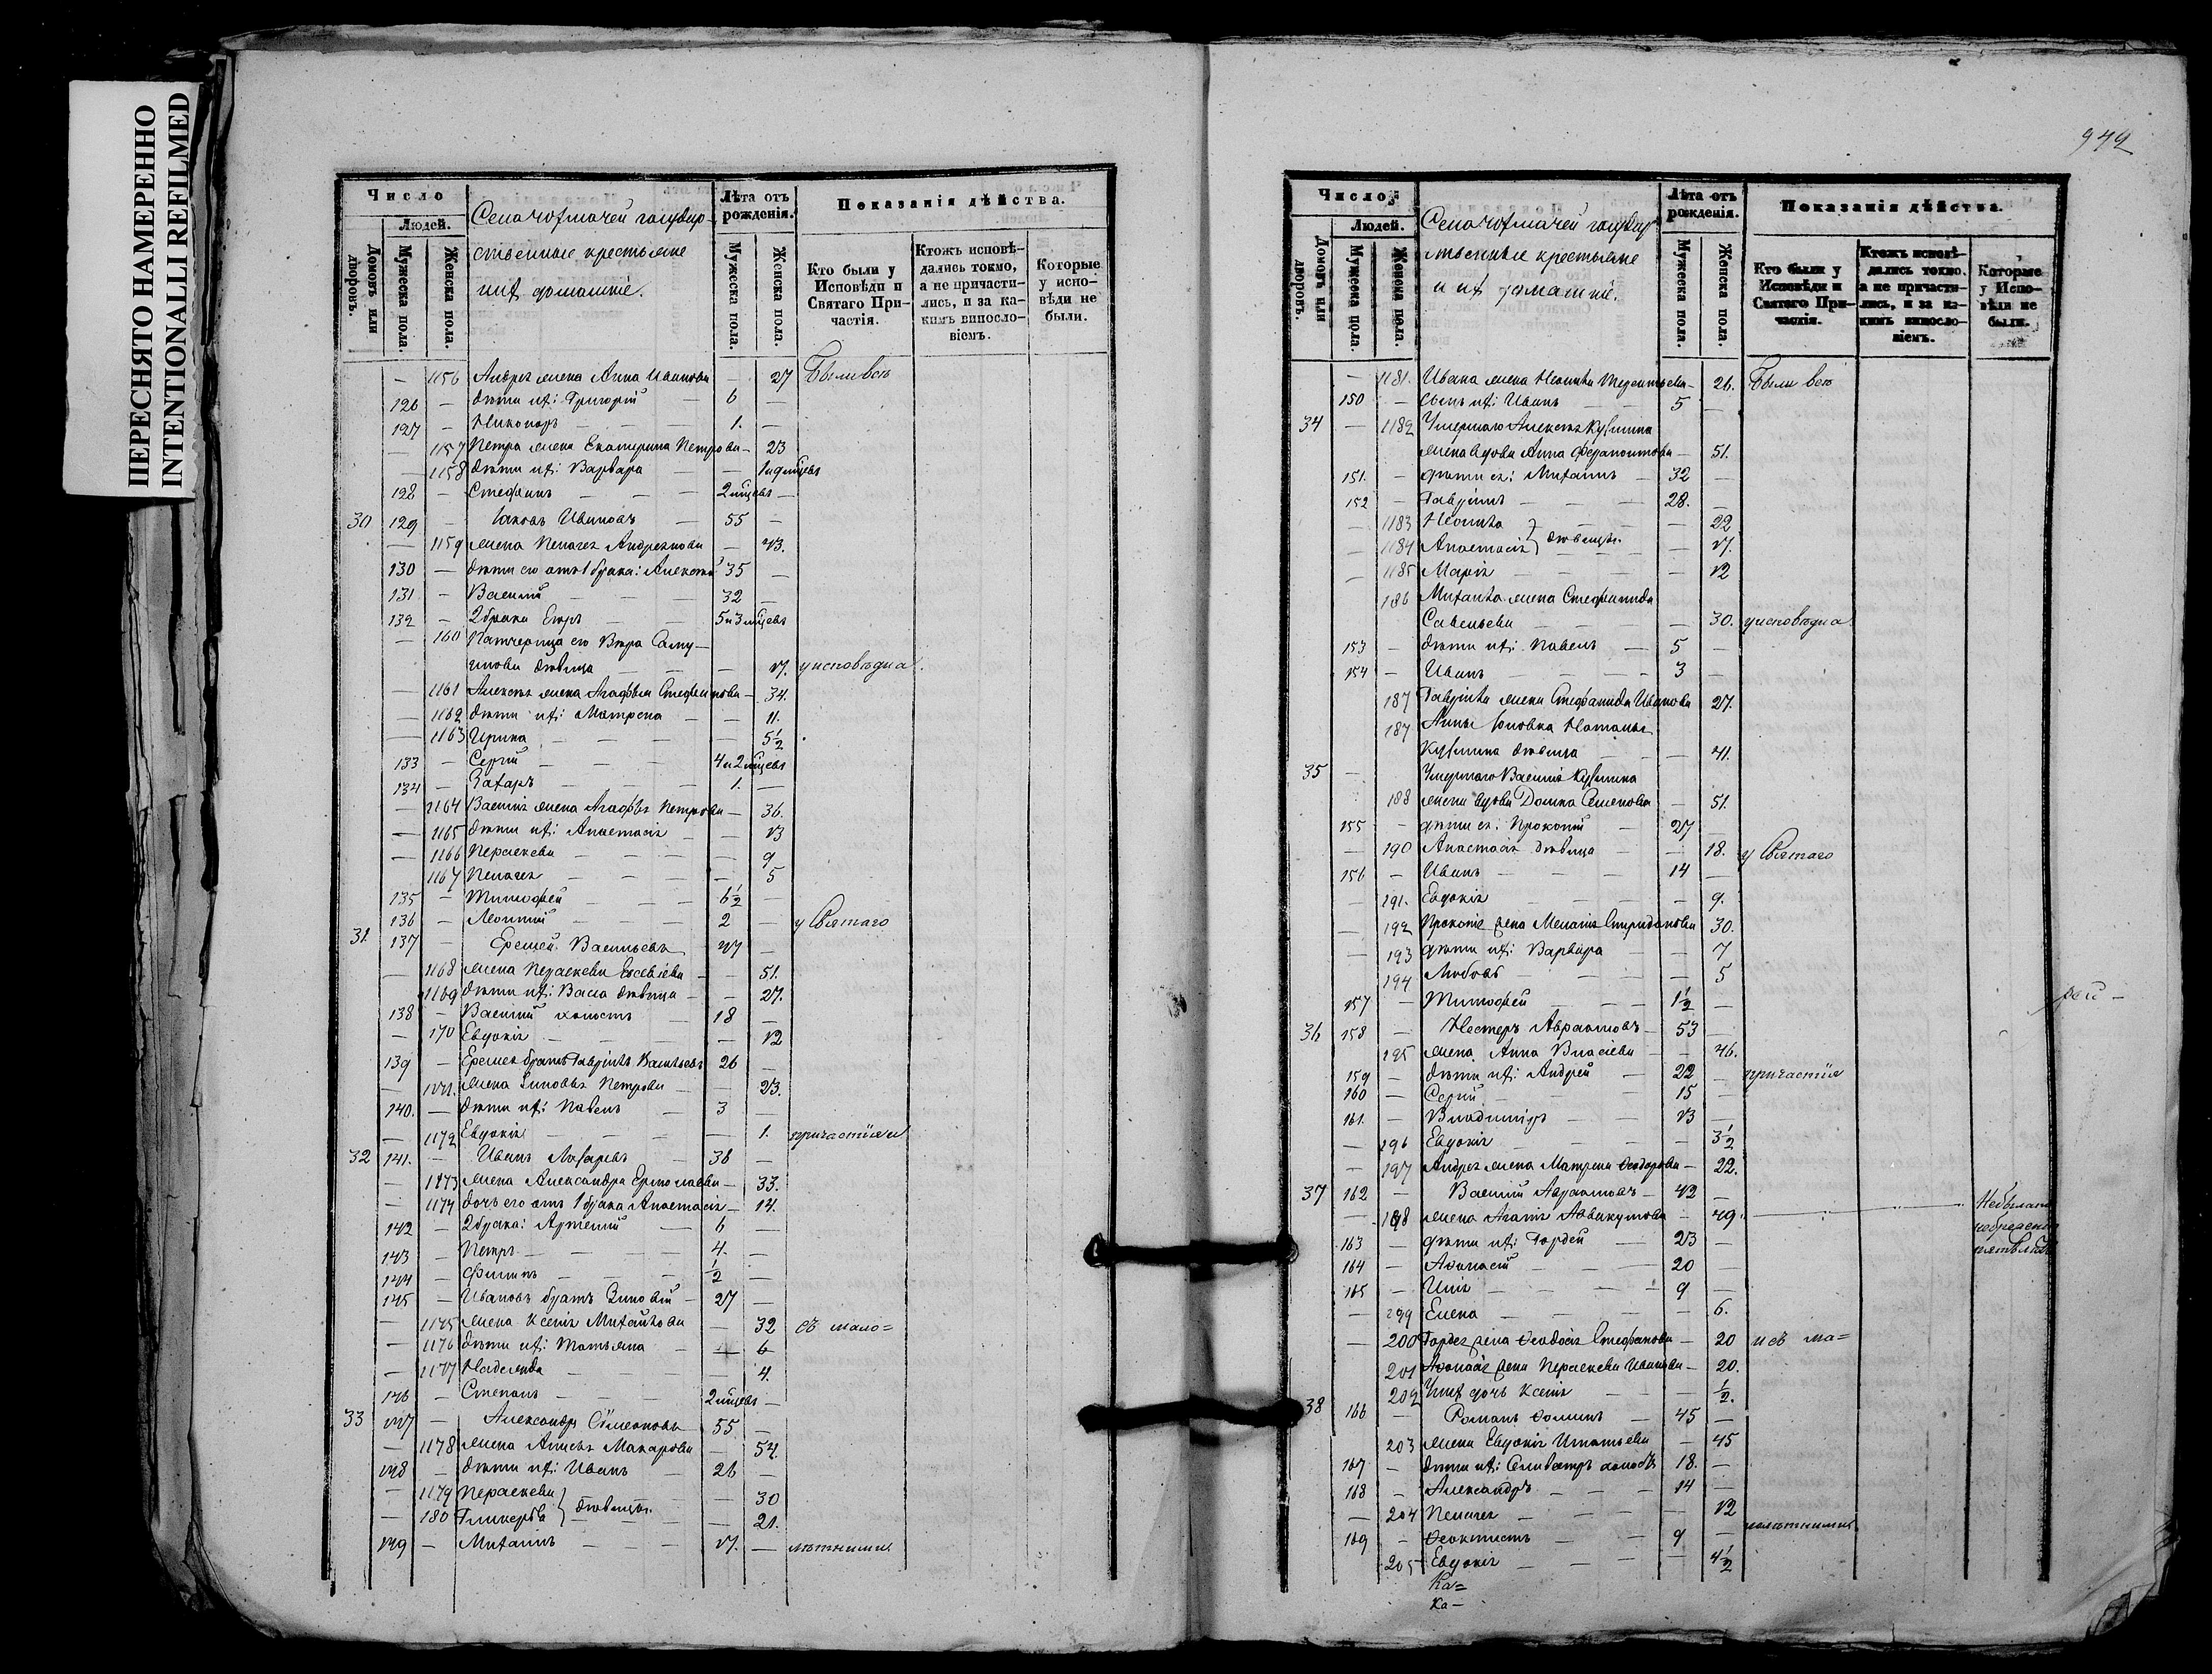 ПЕРЕСНЯТО НАМЕРЕННО
INTENTIONALLI REFILMED
942
Число
Людей.
Домовъ или дворовъ.
Мужеска пола.
Женска пола.
государ-
ственные крестьяне
и их домашніе.
Лѣта отъ рожденія.
Мужеска пола.
Женска пола.
Показанія дѣйства.
Кто были у Исповѣди и Святаго При-частія.
Ктожъ исповѣ-дались токмо, а не причасти-лись, и за ка-кимъ винosло-віемъ.
Которые у испо-вѣди не были.
— 1156 Андрея жена Анна Иванова — 27 Были всѣ
126 — дѣти их: Григорій — 6 —
127 — Никоноръ — 1. —
— 1157 Петра жена Екатерина Петрова — 23
— 1158 дѣти их: Варвара — 1 и 9 мѣцевъ
128 — Стефанъ — 2 мѣцевъ —
30 129 — Іаковъ Ивановъ — 55 —
— 1159 жена Пелагея Андреянова — 43.
130 — дѣти его отъ 1 брака: Алексей 35 —
131 — Василій — 32 —
132 — 2 брака Егоръ — 5 и 3 мѣцевъ
— 160 Патчерица его Вѣра Саму-
илова дѣвица — 17. у исповѣди и
— 1161 Алексея жена Агафья Стефанова — 34.
— 1162 дѣти их: Матрена — 11.
— 1163 Ирина — 5½
133 — Сергій — 4 и 2 мѣцевъ
134 — Захаръ — 1. —
— 1164 Василія жена Агафья Петрова — 36.
— 1165 дѣти их: Анастасія — 13
— 1166 Пераскева — 9
1167 Пелагея — 5
135 — Тимофей — 6½ —
136 — Леонтій — 2 — у Святаго
31. 137 — Еремей Васильевъ 47 —
— 1168 жена Пераскева Евсевіева — 51.
1169 дѣти их: Васса дѣвица — 27.
138 — Василій холостъ — 18 —
— 170 Евдокія — 12
139 — Еремея братъ Гавріилъ Васильевъ 26 —
— 1171. жена Зиновья Петрова — 23.
140. — дѣти их: Павелъ — 3 —
— 1172 Евдокія — 1. причастія и
32 141. — Иванъ Лазаревъ — 36 —
— 1173 жена Александра Ермолаева — 33.
— 1174 дочь его отъ 1 брака Анастасія — 14.
142 — 2 брака: Артемій — 6 —
143 — Петръ — 4. —
144 — Филипъ — ½ —
145 — Ивановъ братъ Зиновій — 27 —
— 1175 жена Ксенія Михайлова — 32 съ мало=
— 1176 дѣти их: Татьяна — 6
— 1177 Надежда — 4.
146 — Степанъ — 2 мѣцевъ —
33 147 — Александръ Симеоновъ 55 —
— 1178 жена Анисья Макарова — 54.
148 — дѣти их: Иванъ — 26 —
— 1179 Пераскева } дѣвицы. — 30
— 180 Гликерья — 21.
149 — Михаилъ — 17. — лѣтними.
Число
Людей.
Домовъ или дворовъ.
Мужеска пола.
Женска пола.
государ-
ственные крестьяне
и их домашніе.
Лѣта отъ рожденія.
Мужеска пола.
Женска пола.
Показанія дѣйства.
Кто были у Исповѣди и Святаго При-частія.
Ктожъ исповѣ-дались токмо, а не причасти-лись, и за ка-кимъ винosло-віемъ.
Которые у Испо-вѣди не были.
— 1181. Ивана жена Неонила Терентьева — 26. Были всѣ
150 — сынъ их: Иванъ — 5 —
34 — 1182 Умершаго Алексея Кузмина
жена вдова Анна Ферапонтова — 51.
151. — дѣти ея: Михаилъ — 32 —
152 — Гавріилъ — 28. —
— 1183 Неонила } — 22
— 1184 Анастасія } дѣвицы. — 17.
— 1185 Марія — 12
186 Михаила жена Стефанида
Савельева — 30. у исповѣди и
153 — дѣти их: Павелъ — 5 —
154 — Иванъ — 3 —
187 Гавріила жена Стефанида Иванова 27.
187 Анны золовка Наталья
Кузмина дѣвица — 41.
35 — Умершаго Василія Кузмина
188 жена вдова Домна Семенова — 51.
155 — дѣти ея: Прокопій — 27 —
— 190 Анастасія дѣвица — 18. у Святаго
156 — Иванъ — 14 —
— 191. Евдокія — 9.
— 192 Прокопія жена Меланія Спиридонова 30.
— 193 дѣти их: Варвара — 7
194 Любовь — 5
157 — Тимофей — 1½ —
36 158 — Нестеръ Авраамовъ — 53 —
195 жена Анна Власіева — 46.
159 — дѣти их: Андрей — 22 — причастія
160 — Сергій — 15 —
161. — Владиміръ — 13 —
— 196 Евдокія — 3½
— 197 Андрея жена Матрена Ѳеодорова — 22.
37 162 — Василій Авраамовъ — 42 —
— 198 жена Агапія Аввакумова — 49.
Небыла по
небрежен
163 — дѣти их: Гордей — 23 —
164 — Аѳонасій — 20 —
165 — Илія — 9 —
— 299 Елена — 6.
— 200 Гордея жена Ѳеодосія Стефанова — 20 и съ ма=
201 Аѳонасія жена Пераскева Иванова — 20.
202 У них дочь Ксенія — ½.
38 166 — Романъ Ѳоминъ — 45 —
203 жена Евдокія Игнатьева — 45
167 — дѣти их: Селиверстъ холостъ 18. —
168 — Александръ — 14 —
— 204 Пелагея — 12
169 — Ѳеоктистъ — 9 — лолѣтними
205 Евдокія — 4½
Ка=
Ка—